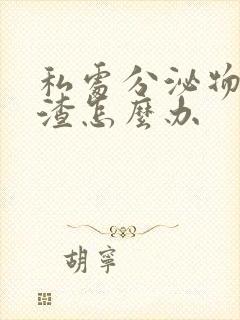 私處分泌物
渣怎麼办
胡寧